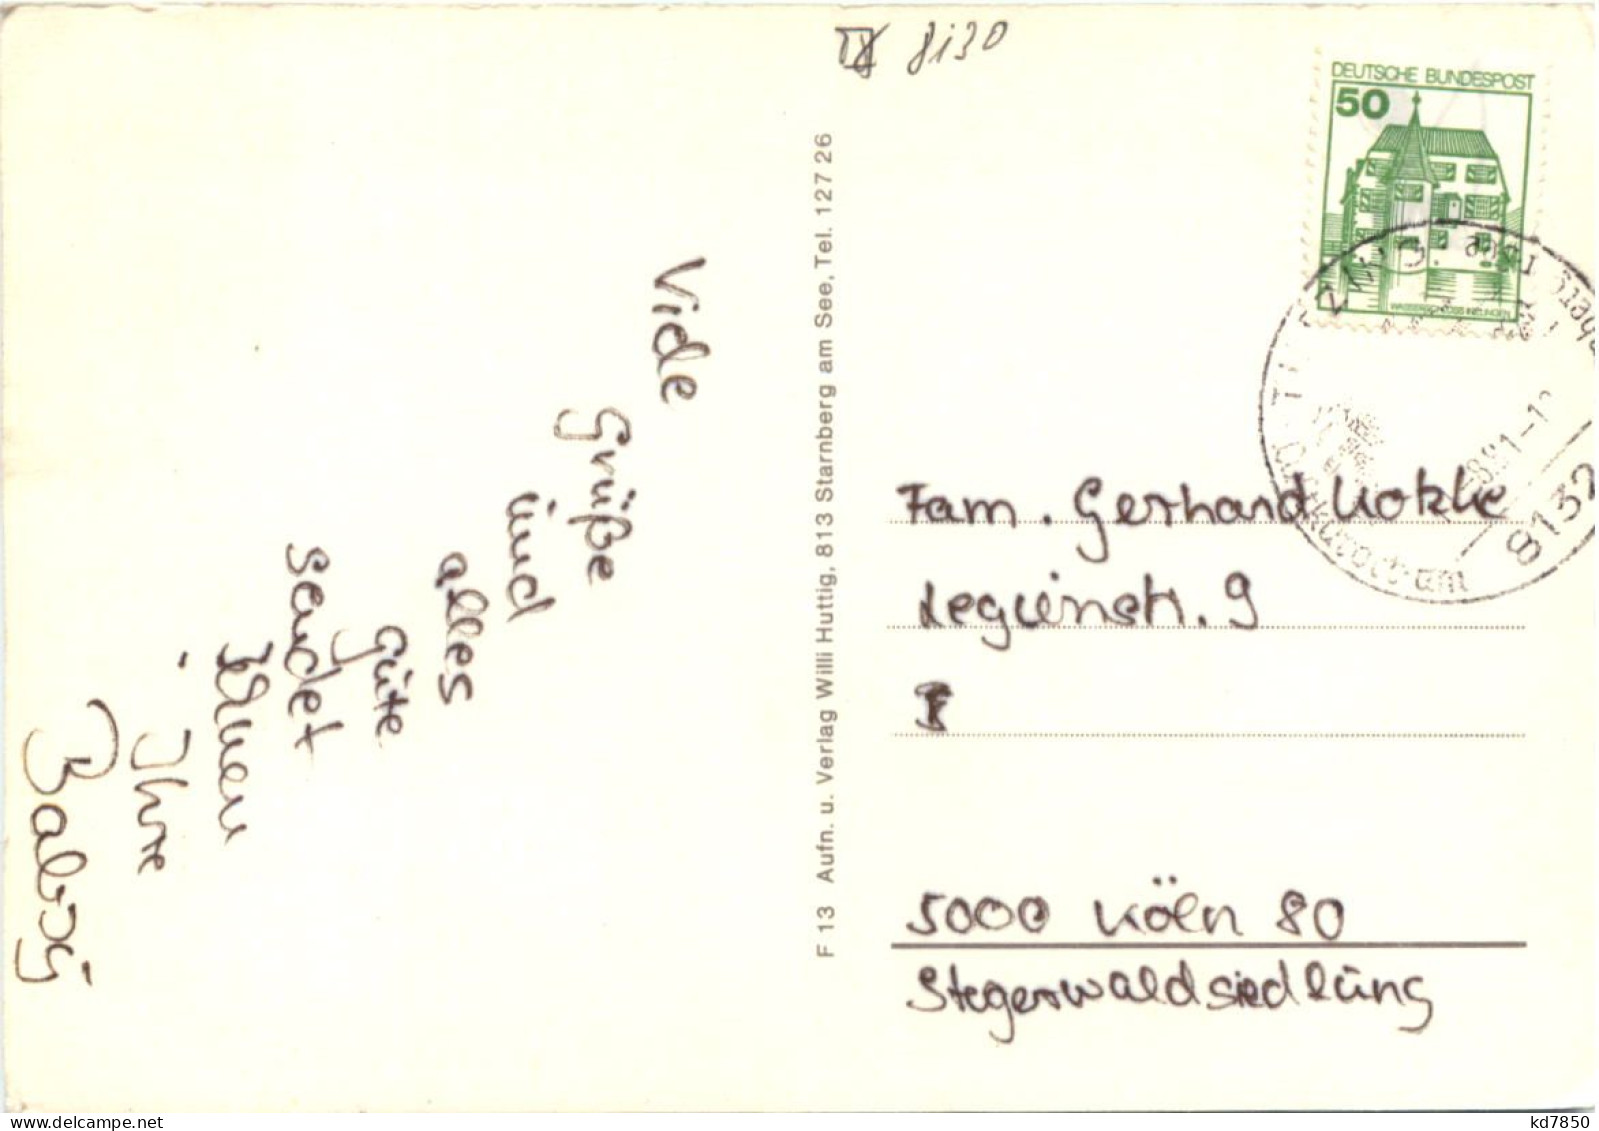 8130
DEUTSCHE BUNDESPOST
50
WASSERSCHLOSS INZLINGEN
8132
Viele
Grüße
und
alles
Gute
sendet
Ihnen
Ihre
F 13 Aufn. u. Verlag Willi Huttig, 813 Starnberg am See, Tel. 127 26
Fam. Gerhard
9
5000 Köln 80
Stegerwaldsiedlung
delcampe.net
kd7850